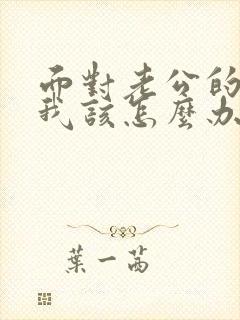 而對老公的
我該怎麼办
葉一茜